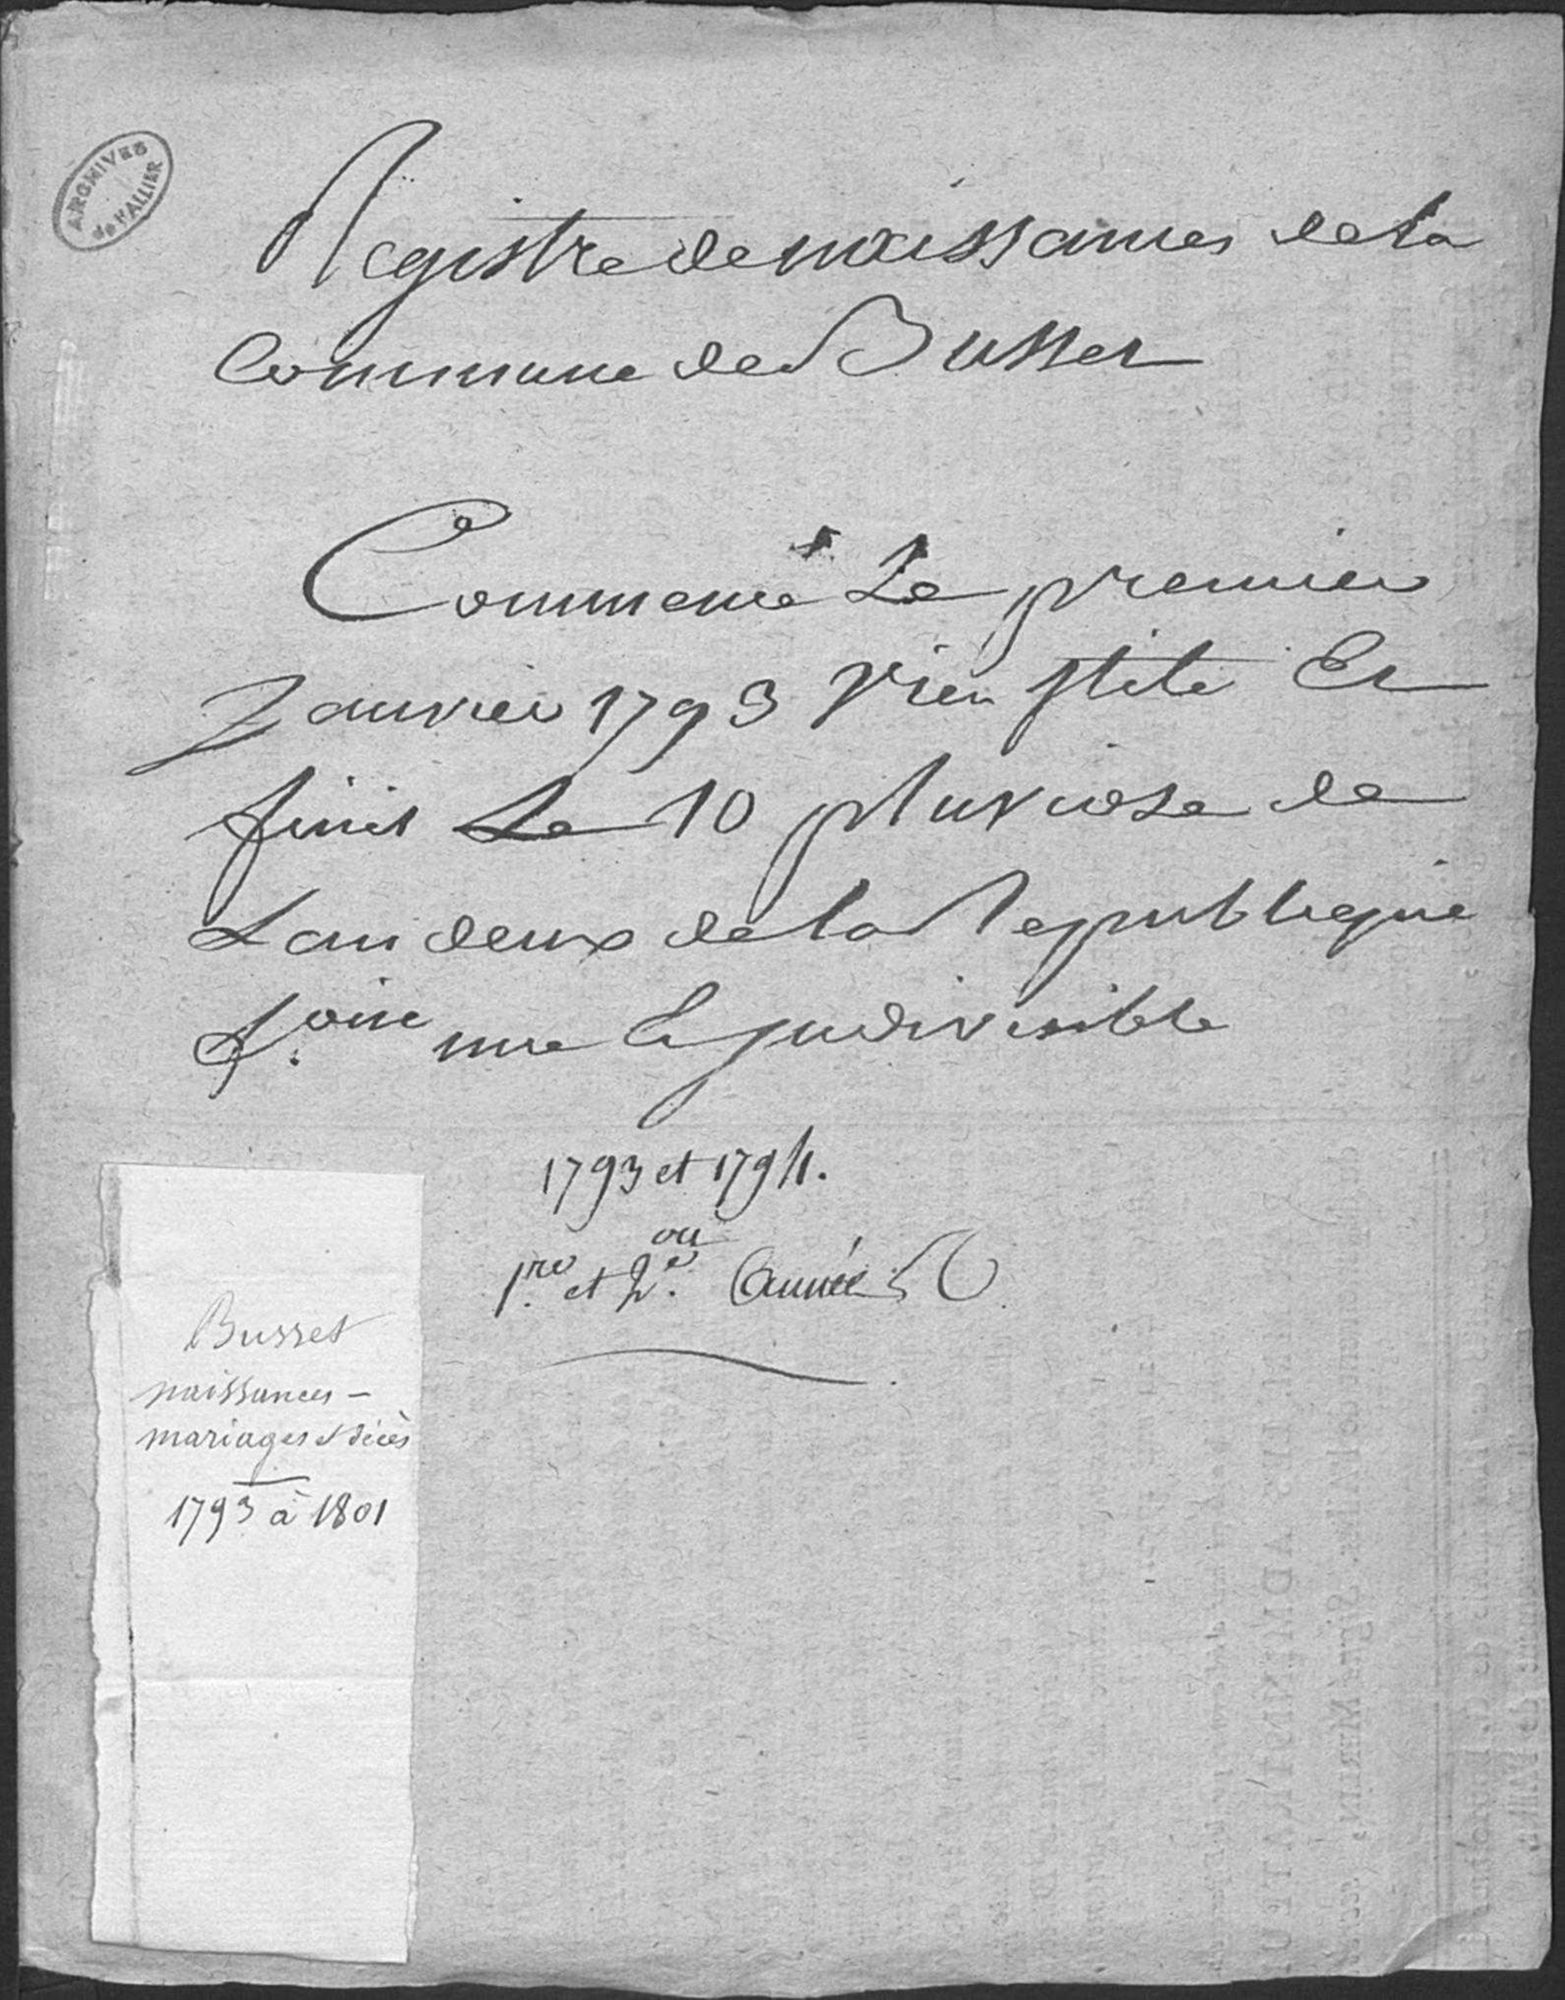 ARCHIVES
de l'ALLIER
Registre de naissances de la
Commune de Busset
Commencé Le premier
Janvier 1793 vieu stile Et
finit Le 10 pluviose de
Lan deux de la Republique
f.oise une Et Indivisible
1793 et 1794.
ou
1.re et 2.e Année
Busset
naissances -
mariages et décès
1793 à 1801